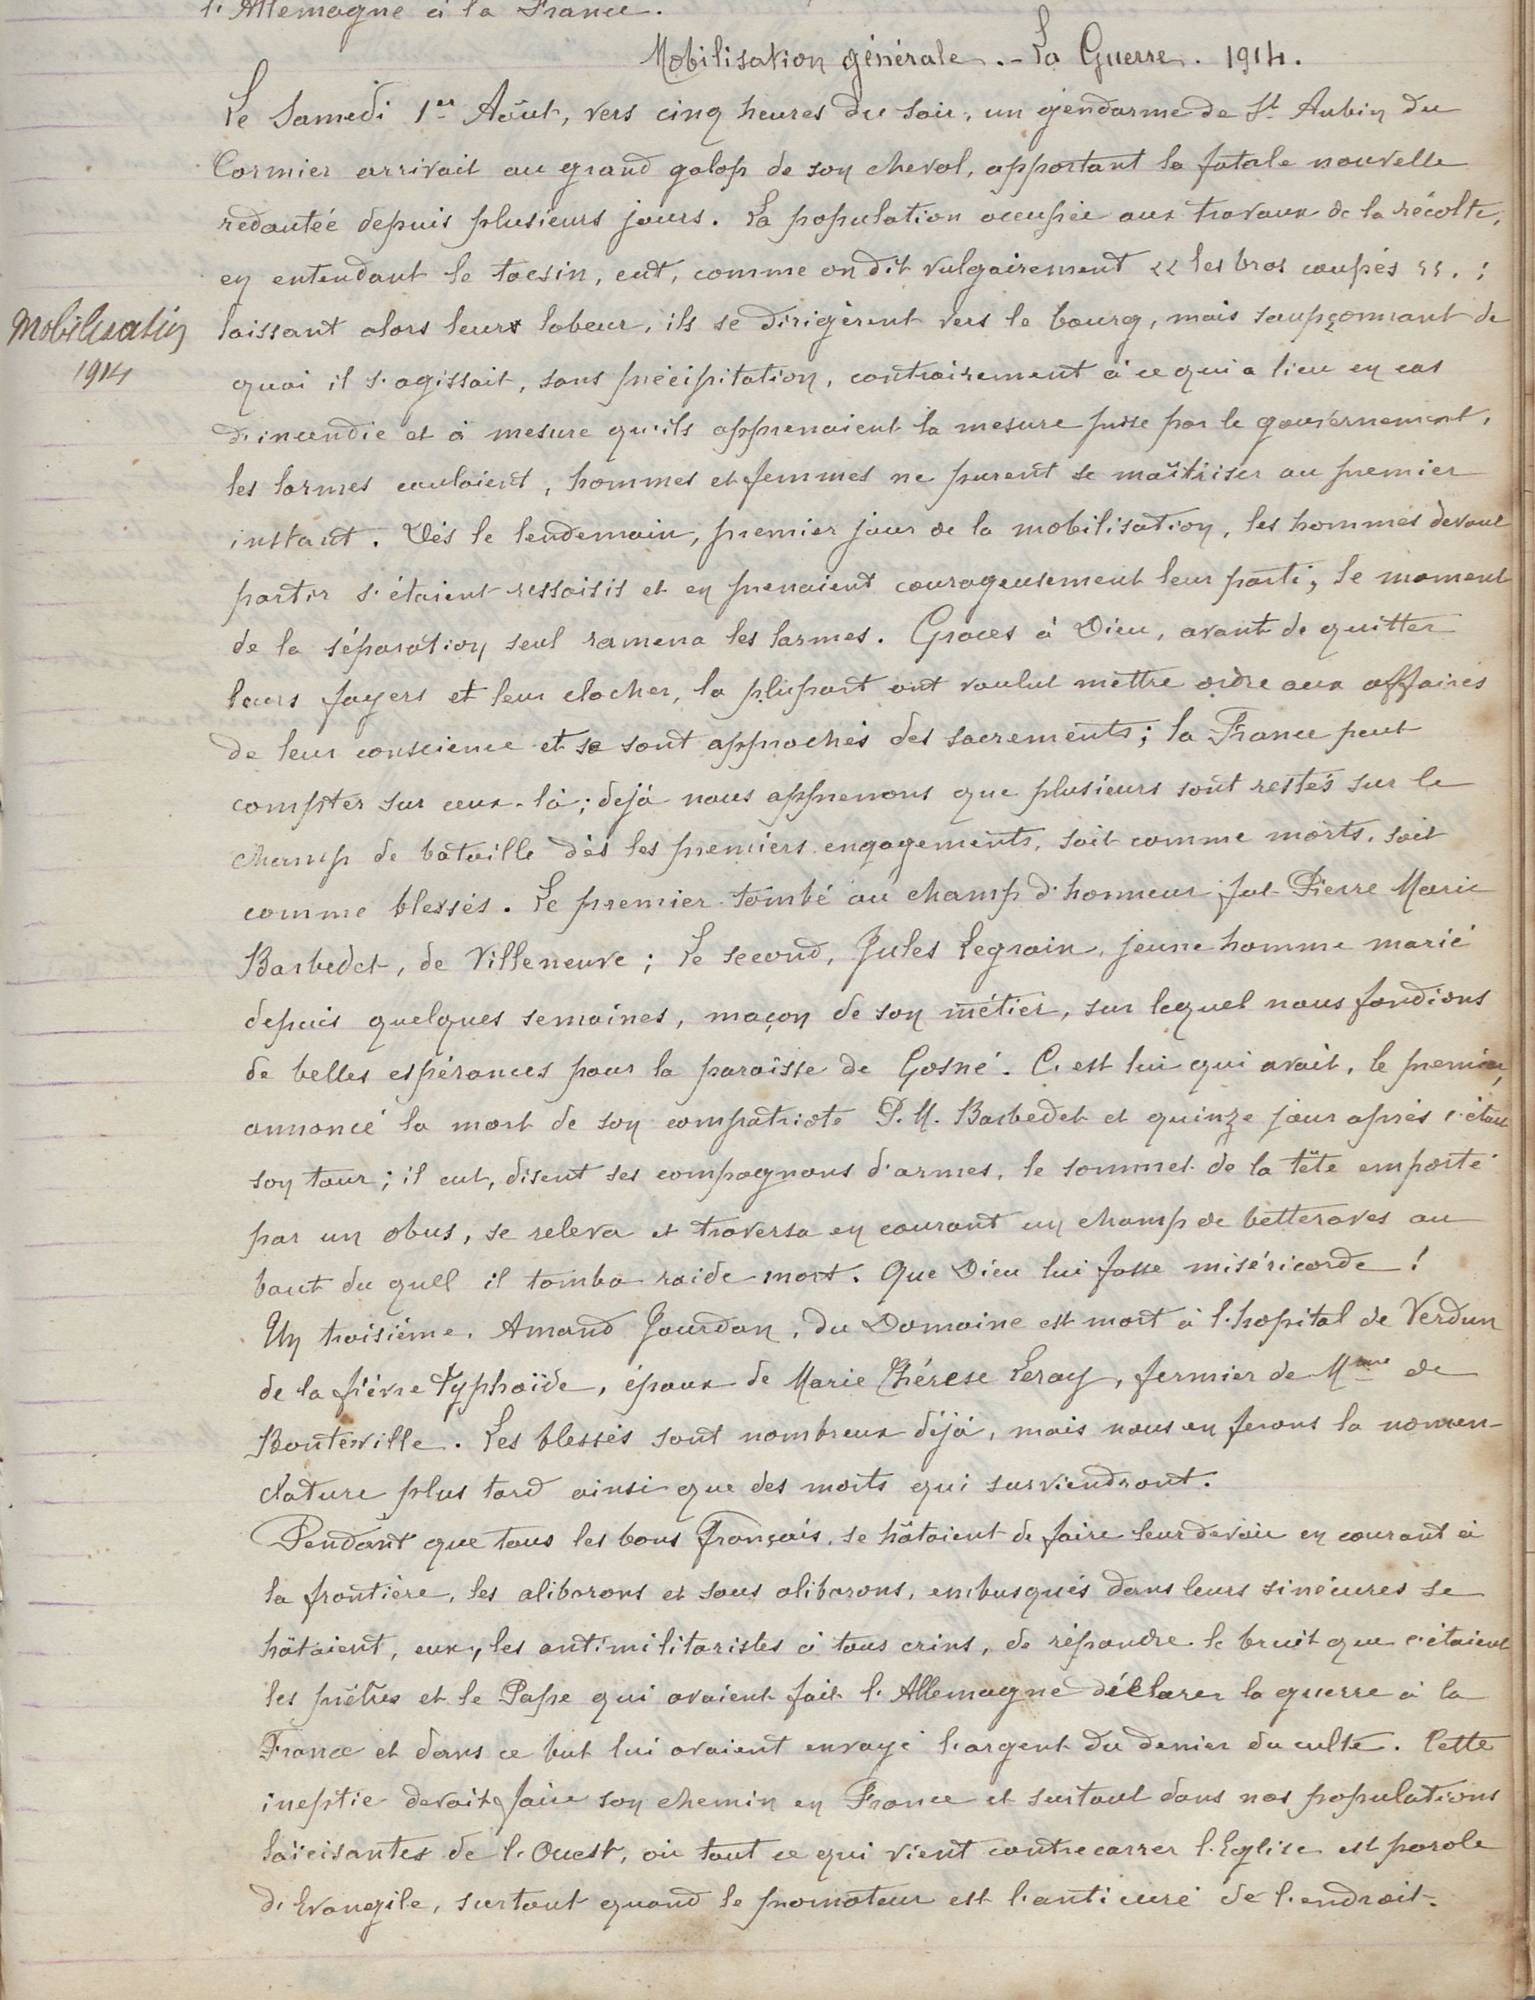 l'Allemagne à la France.
Mobilisation générale. - La Guerre. 1914.
Le Samedi 1er Août, vers cinq heures du soir, un gendarme de St Aubin du
Cormier arrivait au grand galop de son cheval, apportant la fatale nouvelle
redoutée depuis plusieurs jours. La population occupée aux travaux de la récolte,
en entendant le tocsin, eut, comme on dit vulgairement << les bras coupés >>. ;
laissant alors leurs labeur, ils se dirigèrent vers le bourg, mais soupçonnant de
Mobilisation
1914
quoi il s'agissait, sans précipitation, contrairement à ce qui a lieu en cas
d'incendie et à mesure qu'ils apprenaient la mesure prise par le gouvernement,
les larmes coulaient, hommes et femmes ne purent se maîtriser au premier
instant. Dès le lendemain, premier jour de la mobilisation, les hommes devant
partir s'étaient ressaisis et en prenaient courageusement leur parti, le moment
de la séparation seul ramena les larmes. Graces à Dieu, avant de quitter
leurs foyers et leur clocher, la plupart ont voulut mettre ordre aux affaires
de leur conscience et se sont approchés des sacrements; la France peut
compter sur ceux-là; déjà nous apprenons que plusieurs sont restés sur le
champ de bataille dès les premiers engagements, soit comme morts, soit
comme blessés. Le premier tombé au champ d'honneur fut Pierre Marie
Barbedet, de Villeneuve; Le second, Jules Legrain, jeune homme marié
depuis quelques semaines, maçon de son métier, sur lequel nous fondions
de belles espérances pour la paroisse de Gosné. C'est lui qui avait, le premier,
annoncé la mort de son compatriote P.M. Barbedet et quinze jour après c'était
son tour; il eut, disent ses compagnons d'armes, le sommet de la tête emporté
par un obus, se releva et traversa en courant un champ de betteraves au
bout du quell il tomba raide mort. Que Dieu lui fasse miséricorde!
Un troisième, Amand Jourdan, du Domaine est mort à l'hopital de Verdun
de la fièvre Typhoïde, époux de Marie Thérèse Leray, fermier de Mme de
Bouteville. Les blessés sont nombreux déjà, mais nous en ferons la nomen-
clature plus tard ainsi que des morts qui surviendront.
Pendant que tous les bons Français, se hâtaient de faire leur devoir en courant à
la frontière, les aliborons et sous aliborons, embusqués dans leurs sinécures se
hâtaient, eux, les antimilitaristes à tous crins, de répandre le bruit que c'étaient
les prêtres et le Pape qui avaient fait l'Allemagne déclarer la guerre à la
France et dans ce but lui avaient envoyé l'argent du denier du culte. Cette
ineptie devait faire son chemin en France et surtout dans nos populations
laïcisantes de l'Ouest, où tout ce qui vient contrecarrer l'Eglise est parole
d'Evangile, surtout quand le promoteur est l'anti curé de l'endroit.